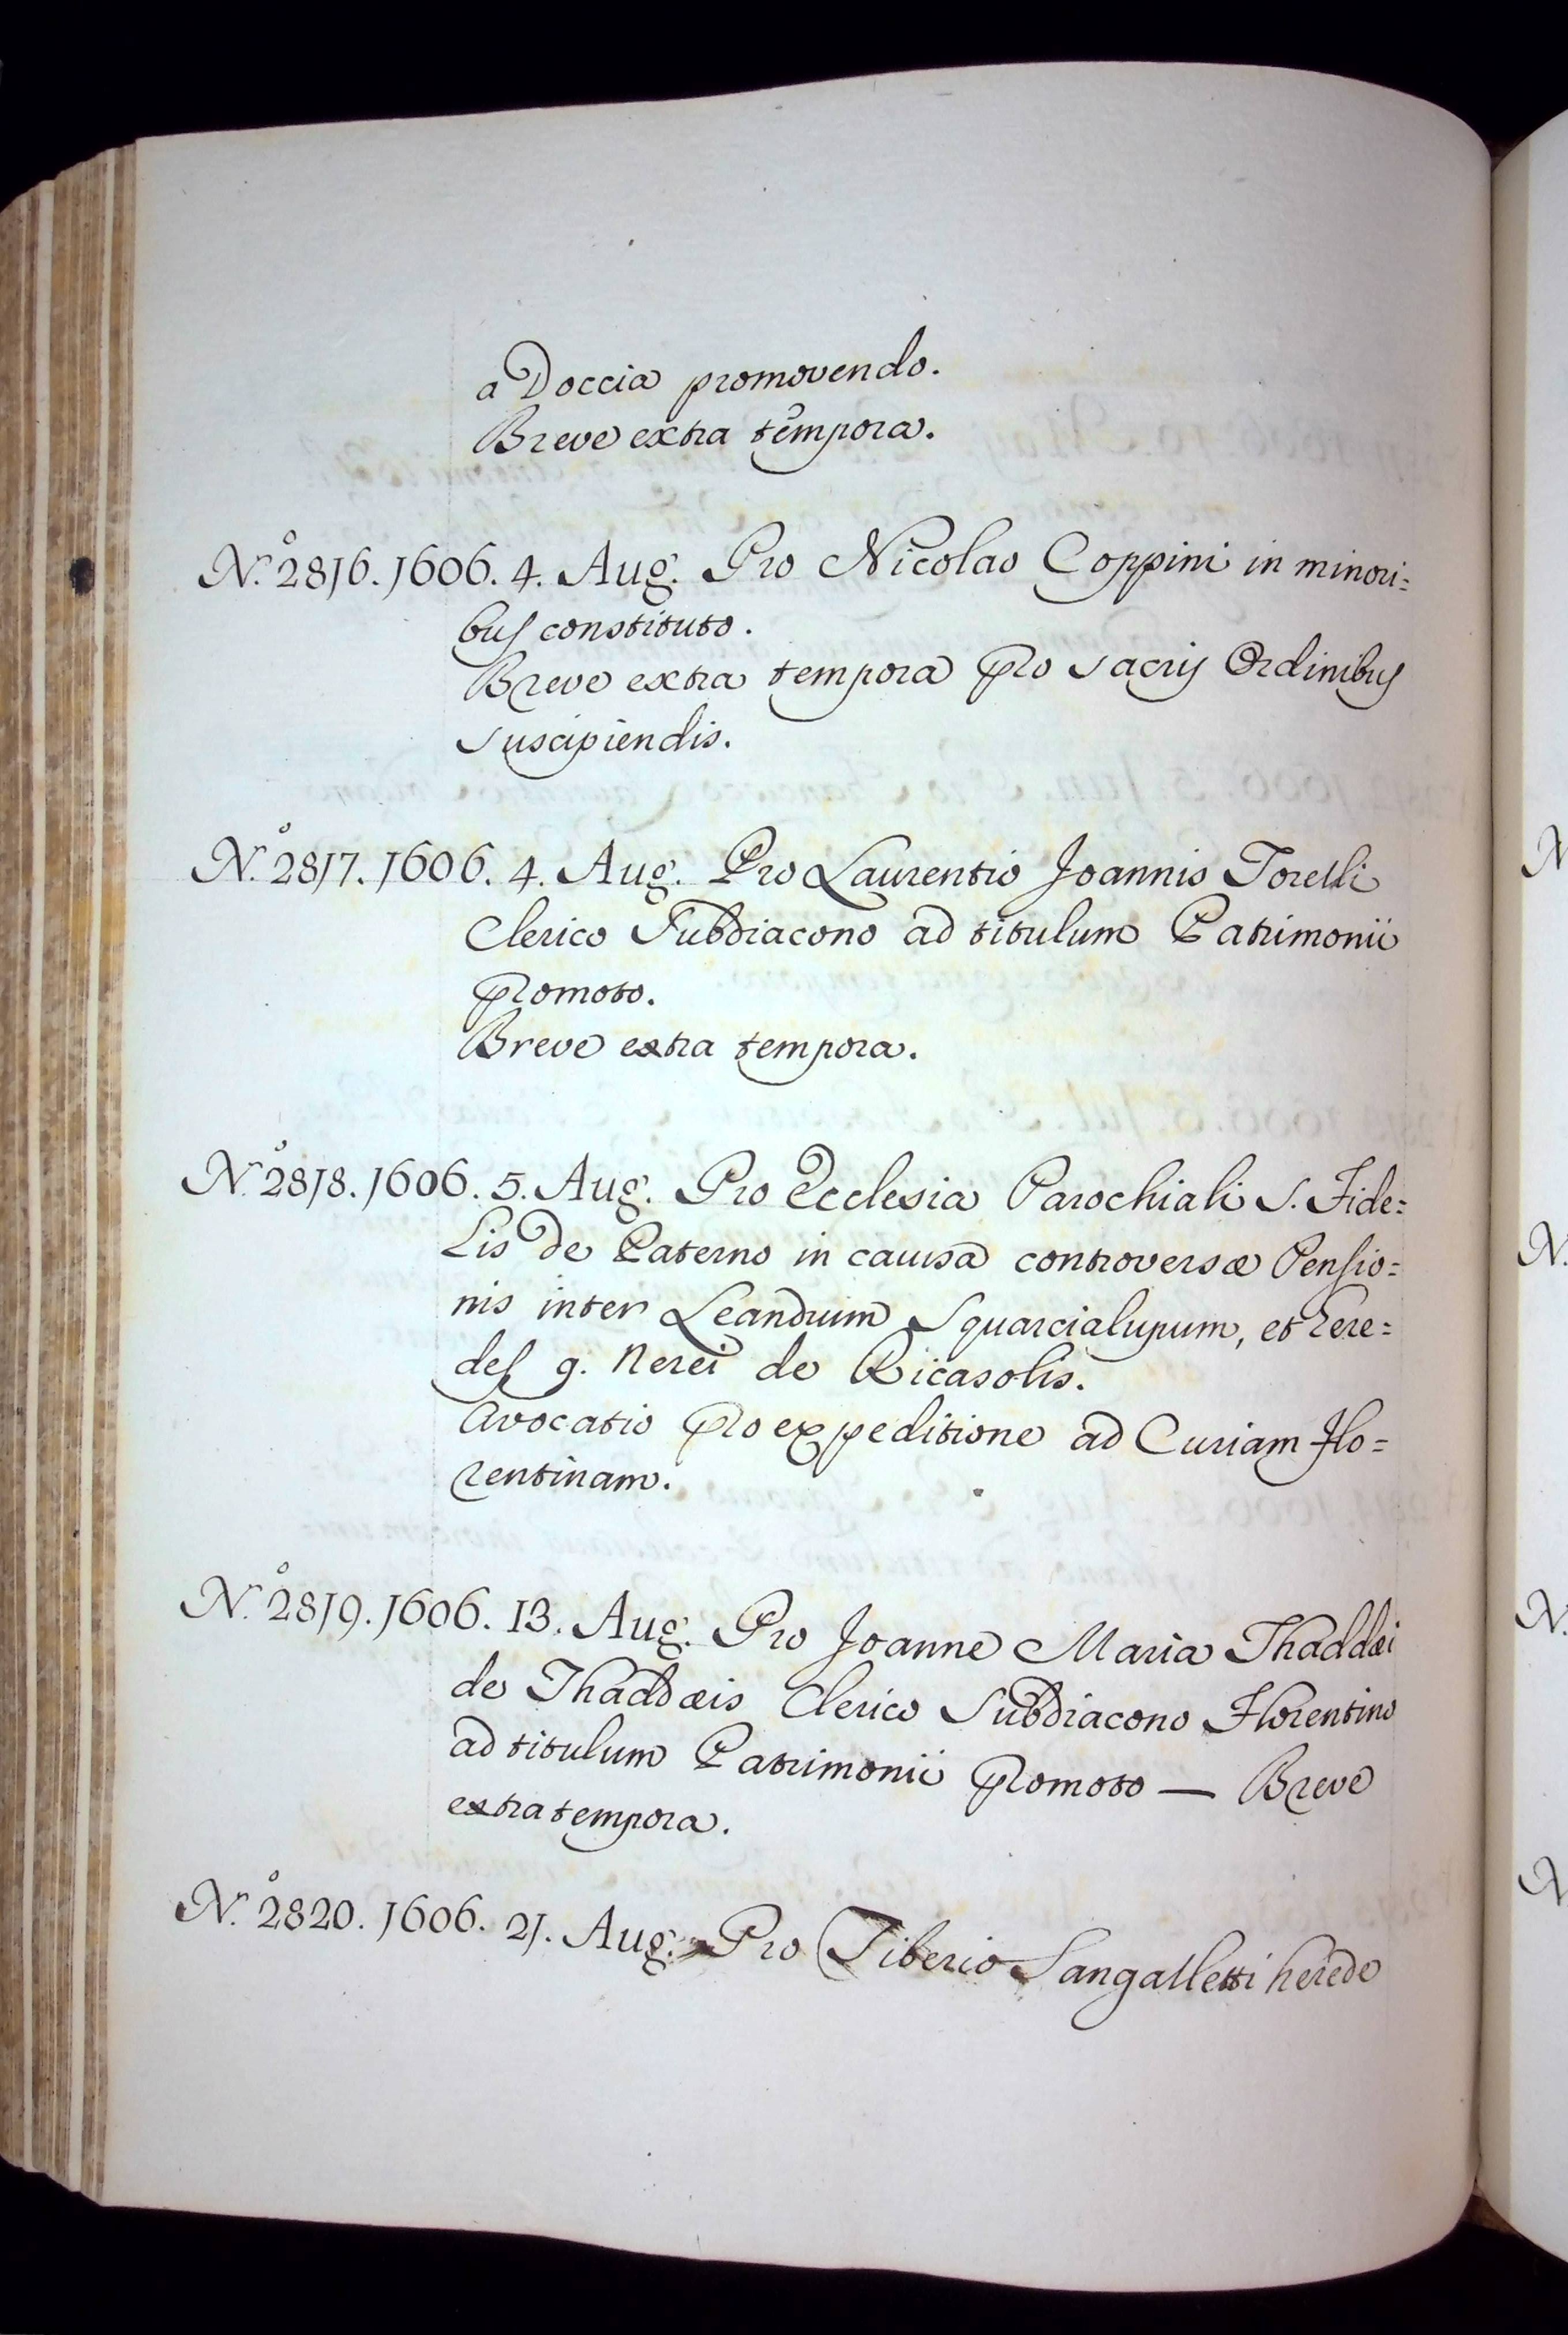 a Doccia promovendo.
Breve extra tempora.
N.º 2816. 1606. 4. Aug. Pro Nicolao Coppini in minori=
bus constituto.
Breve extra tempora pro sacris Ordinibus
suscipiendis.
N.º 2817. 1606. 4. Aug. Pro Laurentio Joannis Torelli
Clerico Subdiacono ad titulum Patrimonii
promoto.
Breve extra tempora.
N.º 2818. 1606. 5. Aug. Pro Ecclesia Parochiali S. Fide=
lis de Paterno in causa controversæ Pensio=
nis inter Leandrum Squarcialupum, et here=
des q. Nerei de Ricasolis.
Avocatio pro expeditione ad Curiam Flo=
rentinam.
N.º 2819. 1606. 13. Aug. Pro Joanne Maria Thaddæi
de Thaddæis Clerico Subdiacono Florentino
ad titulum Patrimonii promoto — Breve
extra tempora.
N.º 2820. 1606. 21. Aug. Pro Tiberio Sangalletti herede